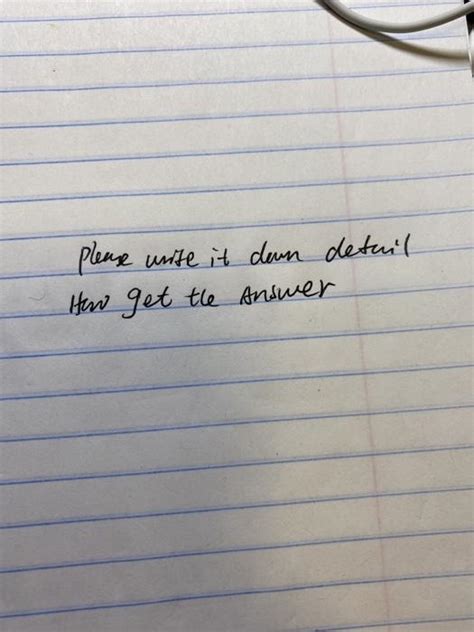 Please write it down detail
How get the Answer